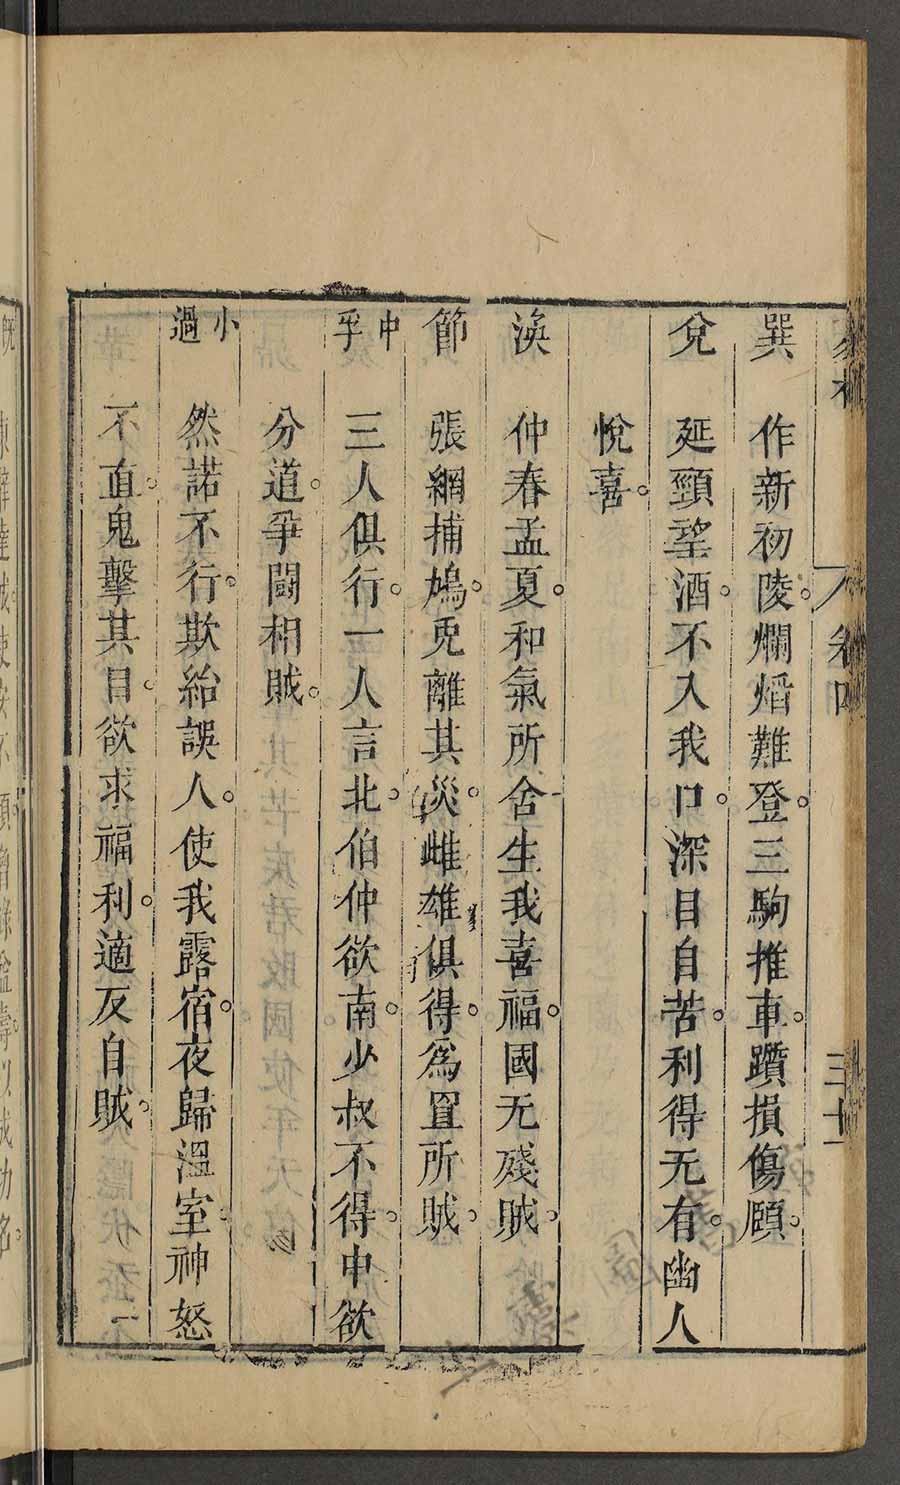 巽 作新初陵。爛熖難登。三駒推車。躓損傷頤。
兌 延頸望酒。不入我口。深目自苦。利得无有。幽人
悅喜。
渙 仲春孟夏。和氣所舍。生我喜福。國无殘賊。
節 張網捕鳩。兎離其災。雌雄俱得。為罝所賊。
中孚 三人俱行。一人言北。伯仲欲南。少叔不得。中欲
分道。爭鬪相賊。
小過 然諾不行。欺紿誤人。使我露宿。夜歸溫室。神怒
不直。鬼擊其目。欲求福利。適反自賊。
卷四